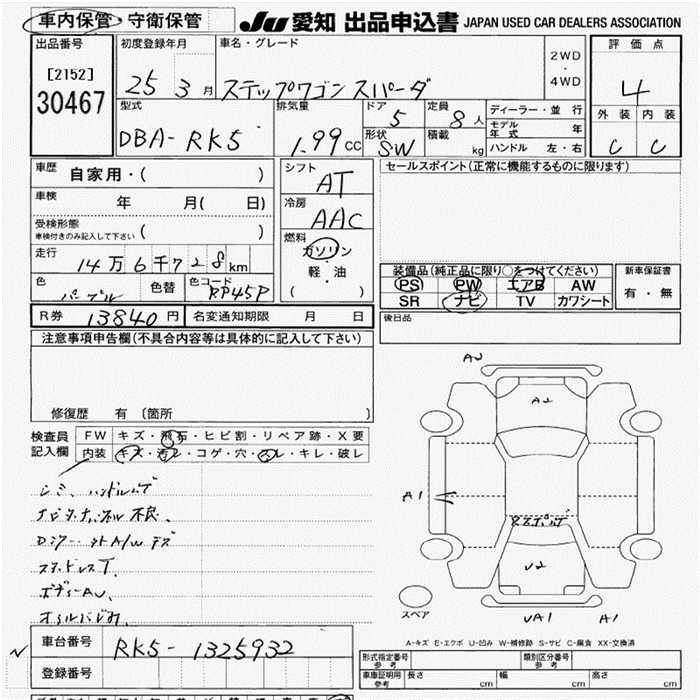 車内保管・守衛保管
JU 愛知 出品申込書 JAPAN USED CAR DEALERS ASSOCIATION
出品番号 初度登録年月 車名・グレード 評価点
[2152] 25 3月 ステップワゴン スパーダ 2WD・4WD 4
30467
型式 排気量 ドア 定員 ディーラー・並行 外装 内装
DBA-RK5 1.99cc 5 8人 モデル年式 年
形状 S.W 積載 kg ハンドル 左・右 C C
車歴 自家用・( ) シフト AT セールスポイント(正常に機能するものに限ります)
車検 年 月( 日) 冷房 AAC
受検形態 ( )
車検付きのみ記入して下さい
燃料 ガソリン・軽・油 ( )
走行 14万6千728km
装備品(純正品に限り○をつけてください) 新車保証書
色 パープル 色替 色コード RP45P PS PW エアB AW 有・無
SR ナビ TV カワシート
R券 13840円 名変通知期限 月 日 後日品
注意事項申告欄(不具合内容等は具体的に記入して下さい)
修復歴 有 〔箇所 〕
検査員記入欄 FW キズ・飛石・ヒビ割・リペア跡・X要
内装 キズ・汚レ・コゲ・穴・スレ・キレ・破レ
シミ、ハンドル
不良、
A/W
ボディーAU、
AU
A2
A1
U2
UA1
A1
スペア
A-キズ E-エクボ U-凹み W-補修跡 S-サビ C-腐食 XX-交換済
車台番号 RK5-1325932
登録番号
形式指定番号 参考 類別区分番号 参考
車庫証明用 参考 長さ cm 幅 cm 高さ cm